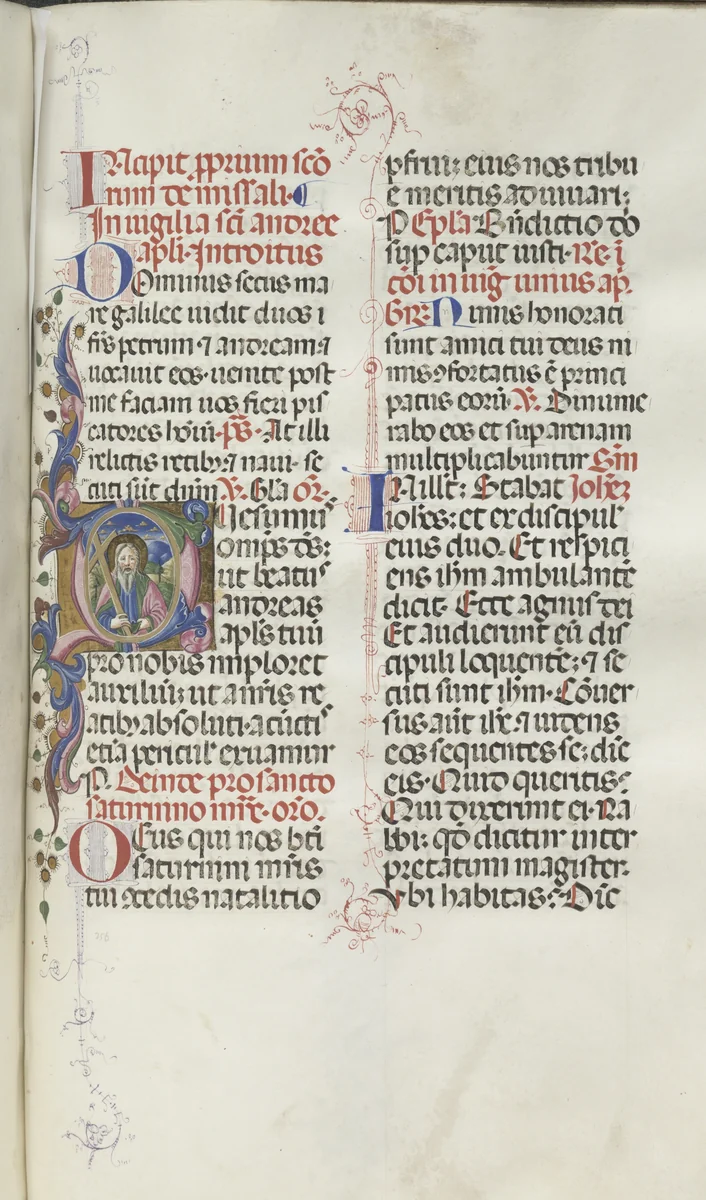 Incipit ꝓprium scõ
rum de missali·
In uigilia sci andree
apli·Introitus
Dominus secus ma
re galilee uidit duos f
r̃s petrum ⁊ andream ⁊
uocauit eos· uenite post
me faciam uos fieri pis
catores hõiũ· p̃s· At illi
relictis retibꝫ ⁊ naui· se
cuti sũt dñm ℣. Gl̃a or̃.
Quesumus
omps ds̃:
ut beatus
andreas
apl̃s tuus
pro nobis imploret
auxiliũ: ut a nr̃is re
atibꝫ absoluti· a cũctis
etiã pericul' exuamur
P. Deinde pro sancto
saturnino mr̃e. or̃o.
Deus qui nos bt̃i
saturnini mr̃is
tui ꝯcedis natalitio
pfrui: eius nos tribu
e meritis adiuuari:
P Ep̃la Bñdictio dõ
sup caput iusti· Re· ĩ
cõi in uig̃ unius ap̃.
Gr̃: Nimis honorati
sunt amici tui deus ni
mis ꝯfortatus ẽ princi
patus eorũ. ℣. Dinume
rabo eos et sup arenam
multiplicabuntur Sm̃
In ill' t̃: Stabat Joh̃es
ioh̃es: et ex discipul'
eius duo. Et respici
ens ih̃m ambulantẽ
dicit· Ecce agnus dei
Et audierunt eũ dis
cipuli loquentẽ: ⁊ se
cuti sunt ih̃m· Cõuer
sus aũt ih̃c ⁊ uidens
eos sequentes se: dic̃
eis· Quid queritis?
Qui dixerunt ei· Ra
bbi: qđ dicitur inter
pretatum magister·
Vbi habitas? Dic̃